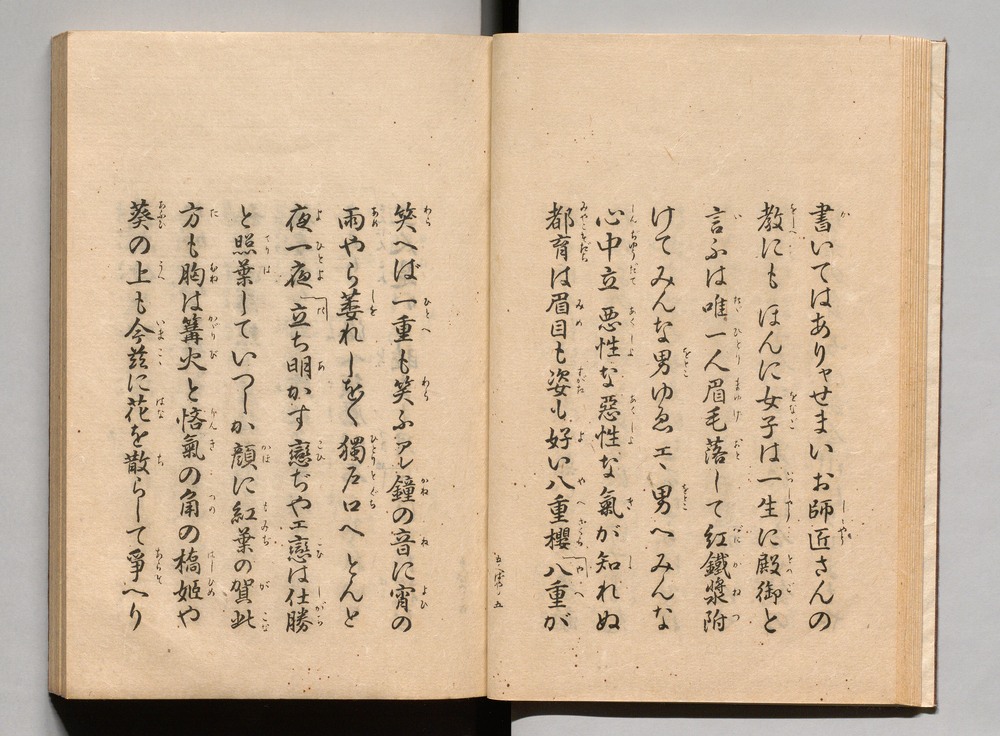 書いてはありやせまいお師匠さんの
教にもほんに女子は一生に殿御と
言ふは唯一人眉毛落して紅鐵漿附
けてみんな男ゆゑエヽ男へみんな
心中立悪性な惡性な氣が知れぬ
都育は眉目も姿も好い八重櫻八重が
笑へば一重も笑ふアレ鐘の音に宵の
雨やら萎れしをく獨戸口へとんと
夜一夜立ち明かす戀ぢやエ戀は仕勝
と照葉していつしか顔に紅葉の賀此
方も胸は篝火と悋氣の角の橋姫や
葵の上も今茲に花を散らして爭へり